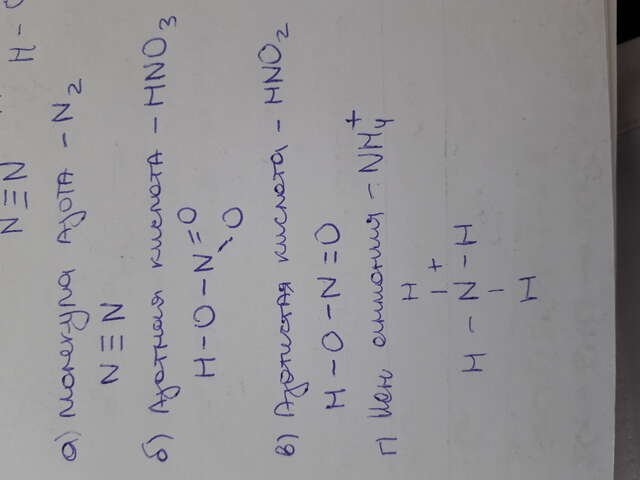 N≡N H-
а) молекула азота - N2
N≡N
б) Азотная кислота - HNO3
H-O-N=O
O
в) Азотистая кислота - HNO2
H-O-N=O
г) Ион аммония - NH4+
H
+
H-N-H
H